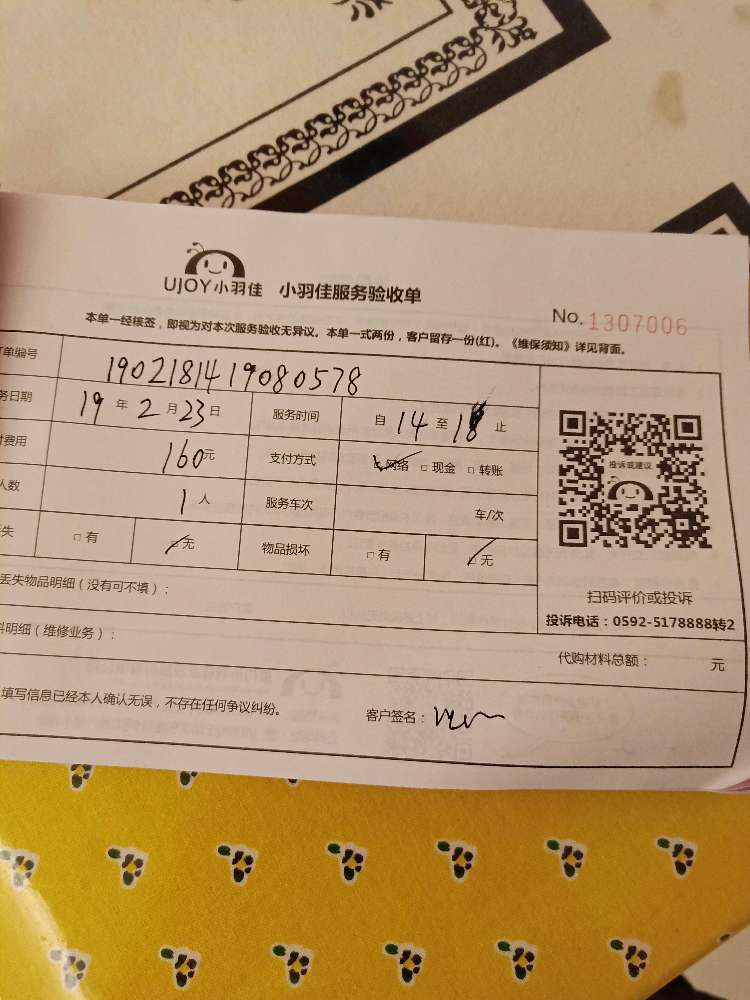 UJOY小羽佳 小羽佳服务验收单
No. 1307006
本单一经核签，即视为对本次服务验收无异议。本单一式两份，客户留存一份(红)。《维保须知》详见背面。
单编号 1902181419080578
务日期 19 年 2 月 23 日 服务时间 自 14 至 18 止
费用 160元 支付方式 ☑网络 □现金 □转账
人数 1 人 服务车次 车/次
失 □有 ☑无 物品损坏 □有 ☑无
投诉或建议
扫码评价或投诉
投诉电话：0592-5178888转2
丢失物品明细（没有可不填）：
料明细（维修业务）：
代购材料总额： 元
填写信息已经本人确认无误，不存在任何争议纠纷。 客户签名：